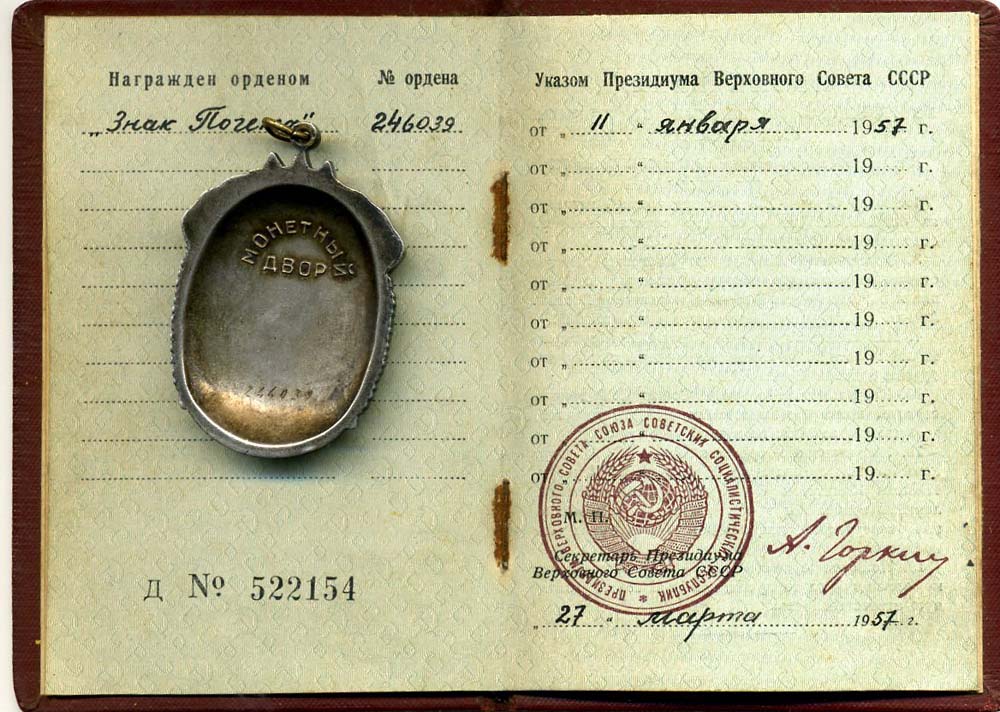 Награжден орденом № ордена
„Знак Почета" 246039
МОНЕТНЫЙ
ДВОР
246039
Д № 522154
Указом Президиума Верховного Совета СССР
от „ 11 “ января 1957 г.
от „ “ 19 г.
от „ “ 19 г.
от „ “ 19 г.
от „ “ 19 г.
от „ “ 19 г.
от „ “ 19 г.
от „ “ 19 г.
от „ “ 19 г.
от „ “ 19 г.
ПРЕЗИДИУМ ВЕРХОВНОГО СОВЕТА СОЮЗА СОВЕТСКИХ СОЦИАЛИСТИЧЕСКИХ РЕСПУБЛИК
М. П.
Секретарь Президиума
Верховного Совета СССР
А. Горкин
„ 27 “ марта 1957 г.